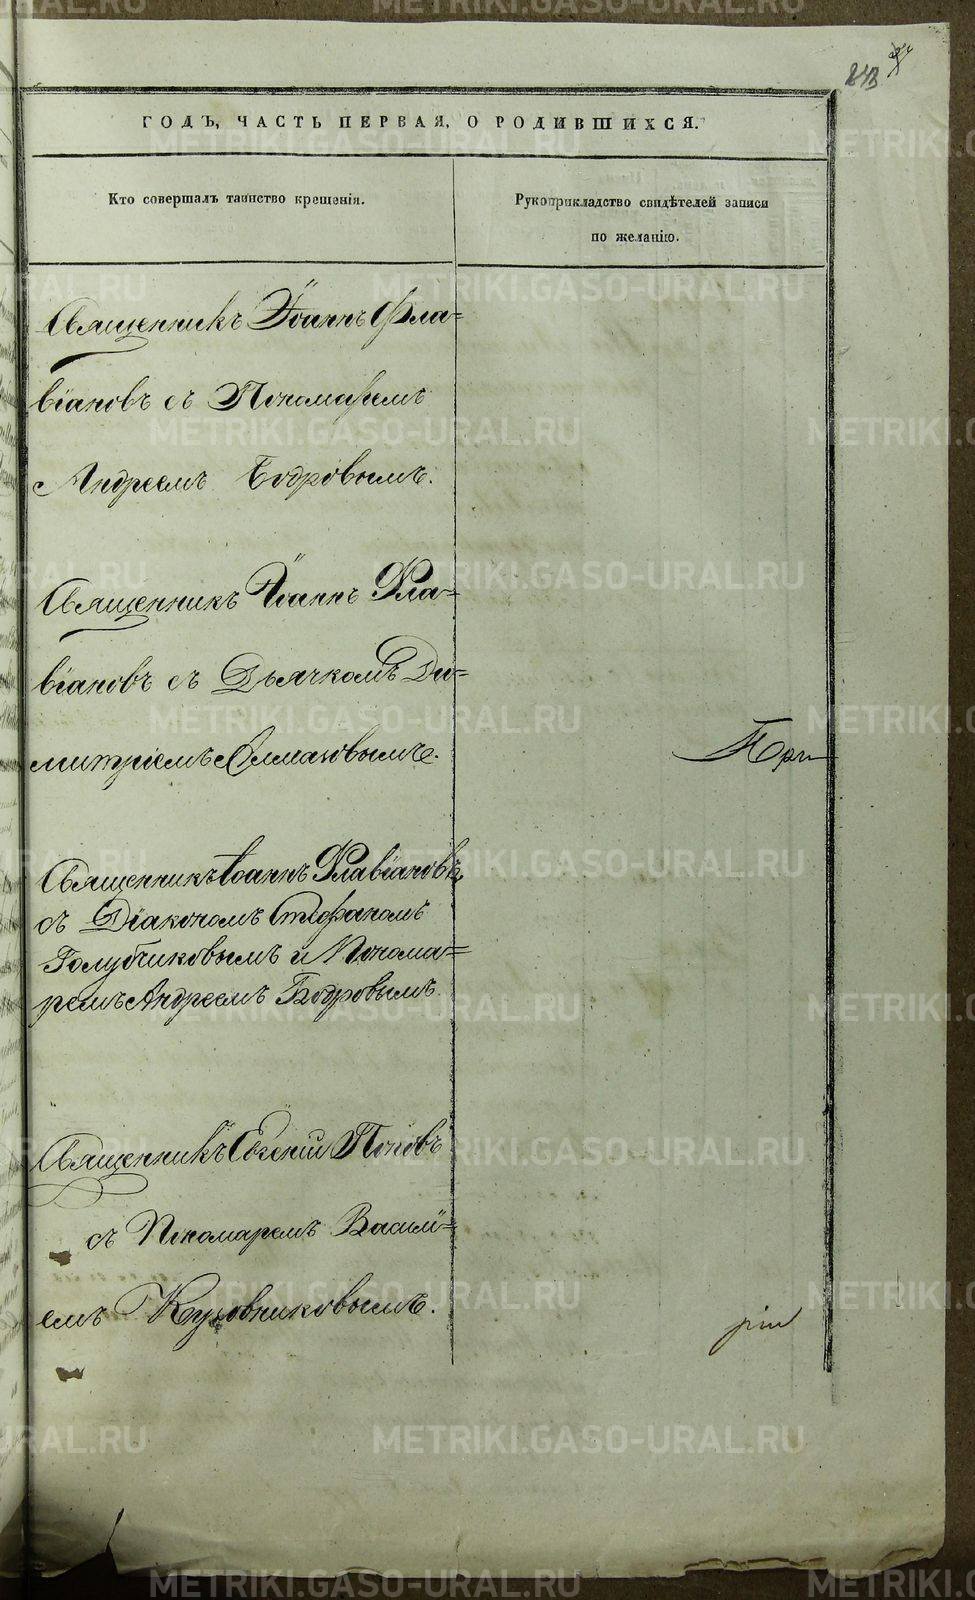 243
ГОДЪ, ЧАСТЬ ПЕРВАЯ, О РОДИВШИХСЯ.
Кто совершалъ таинство крещенія.
Рукоприкладство свидѣтелей записи
по желанію.
Священникъ Іоаннъ Фла=
віановъ съ Пономаремъ
Андреемъ Бодровымъ.
Священникъ Іоаннъ Фла=
віановъ съ Дьячкомъ Ди=
митріемъ
При
Священникъ Іоаннъ Флавіановъ
съ Діакономъ Стефаномъ
Голубчиковымъ и Понома=
ремъ Андреемъ Бодровымъ.
Священникъ Евгеній Поповъ
съ Пономаремъ Василі=
емъ
METRIKI.GASO-URAL.RU